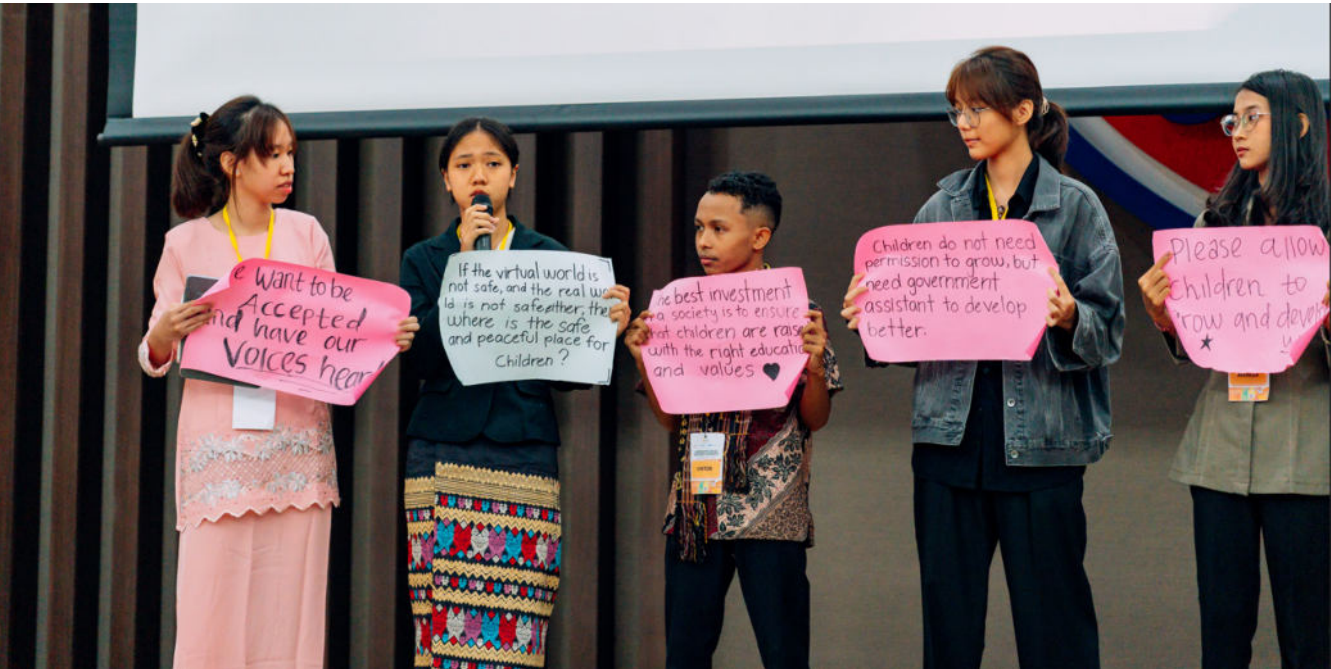 e Want to be
Accepted
and have our
VOICES hear
If the virtual world is
not safe, and the real wo
ld is not safe either, the
where is the safe
and peaceful place for
Children?
he best investment
a society is to ensure
that children are raise
with the right educatio
and values
Children do not need
permission to grow, but
need government
assistant to develop
better.
Please allow
Children to
row and devel